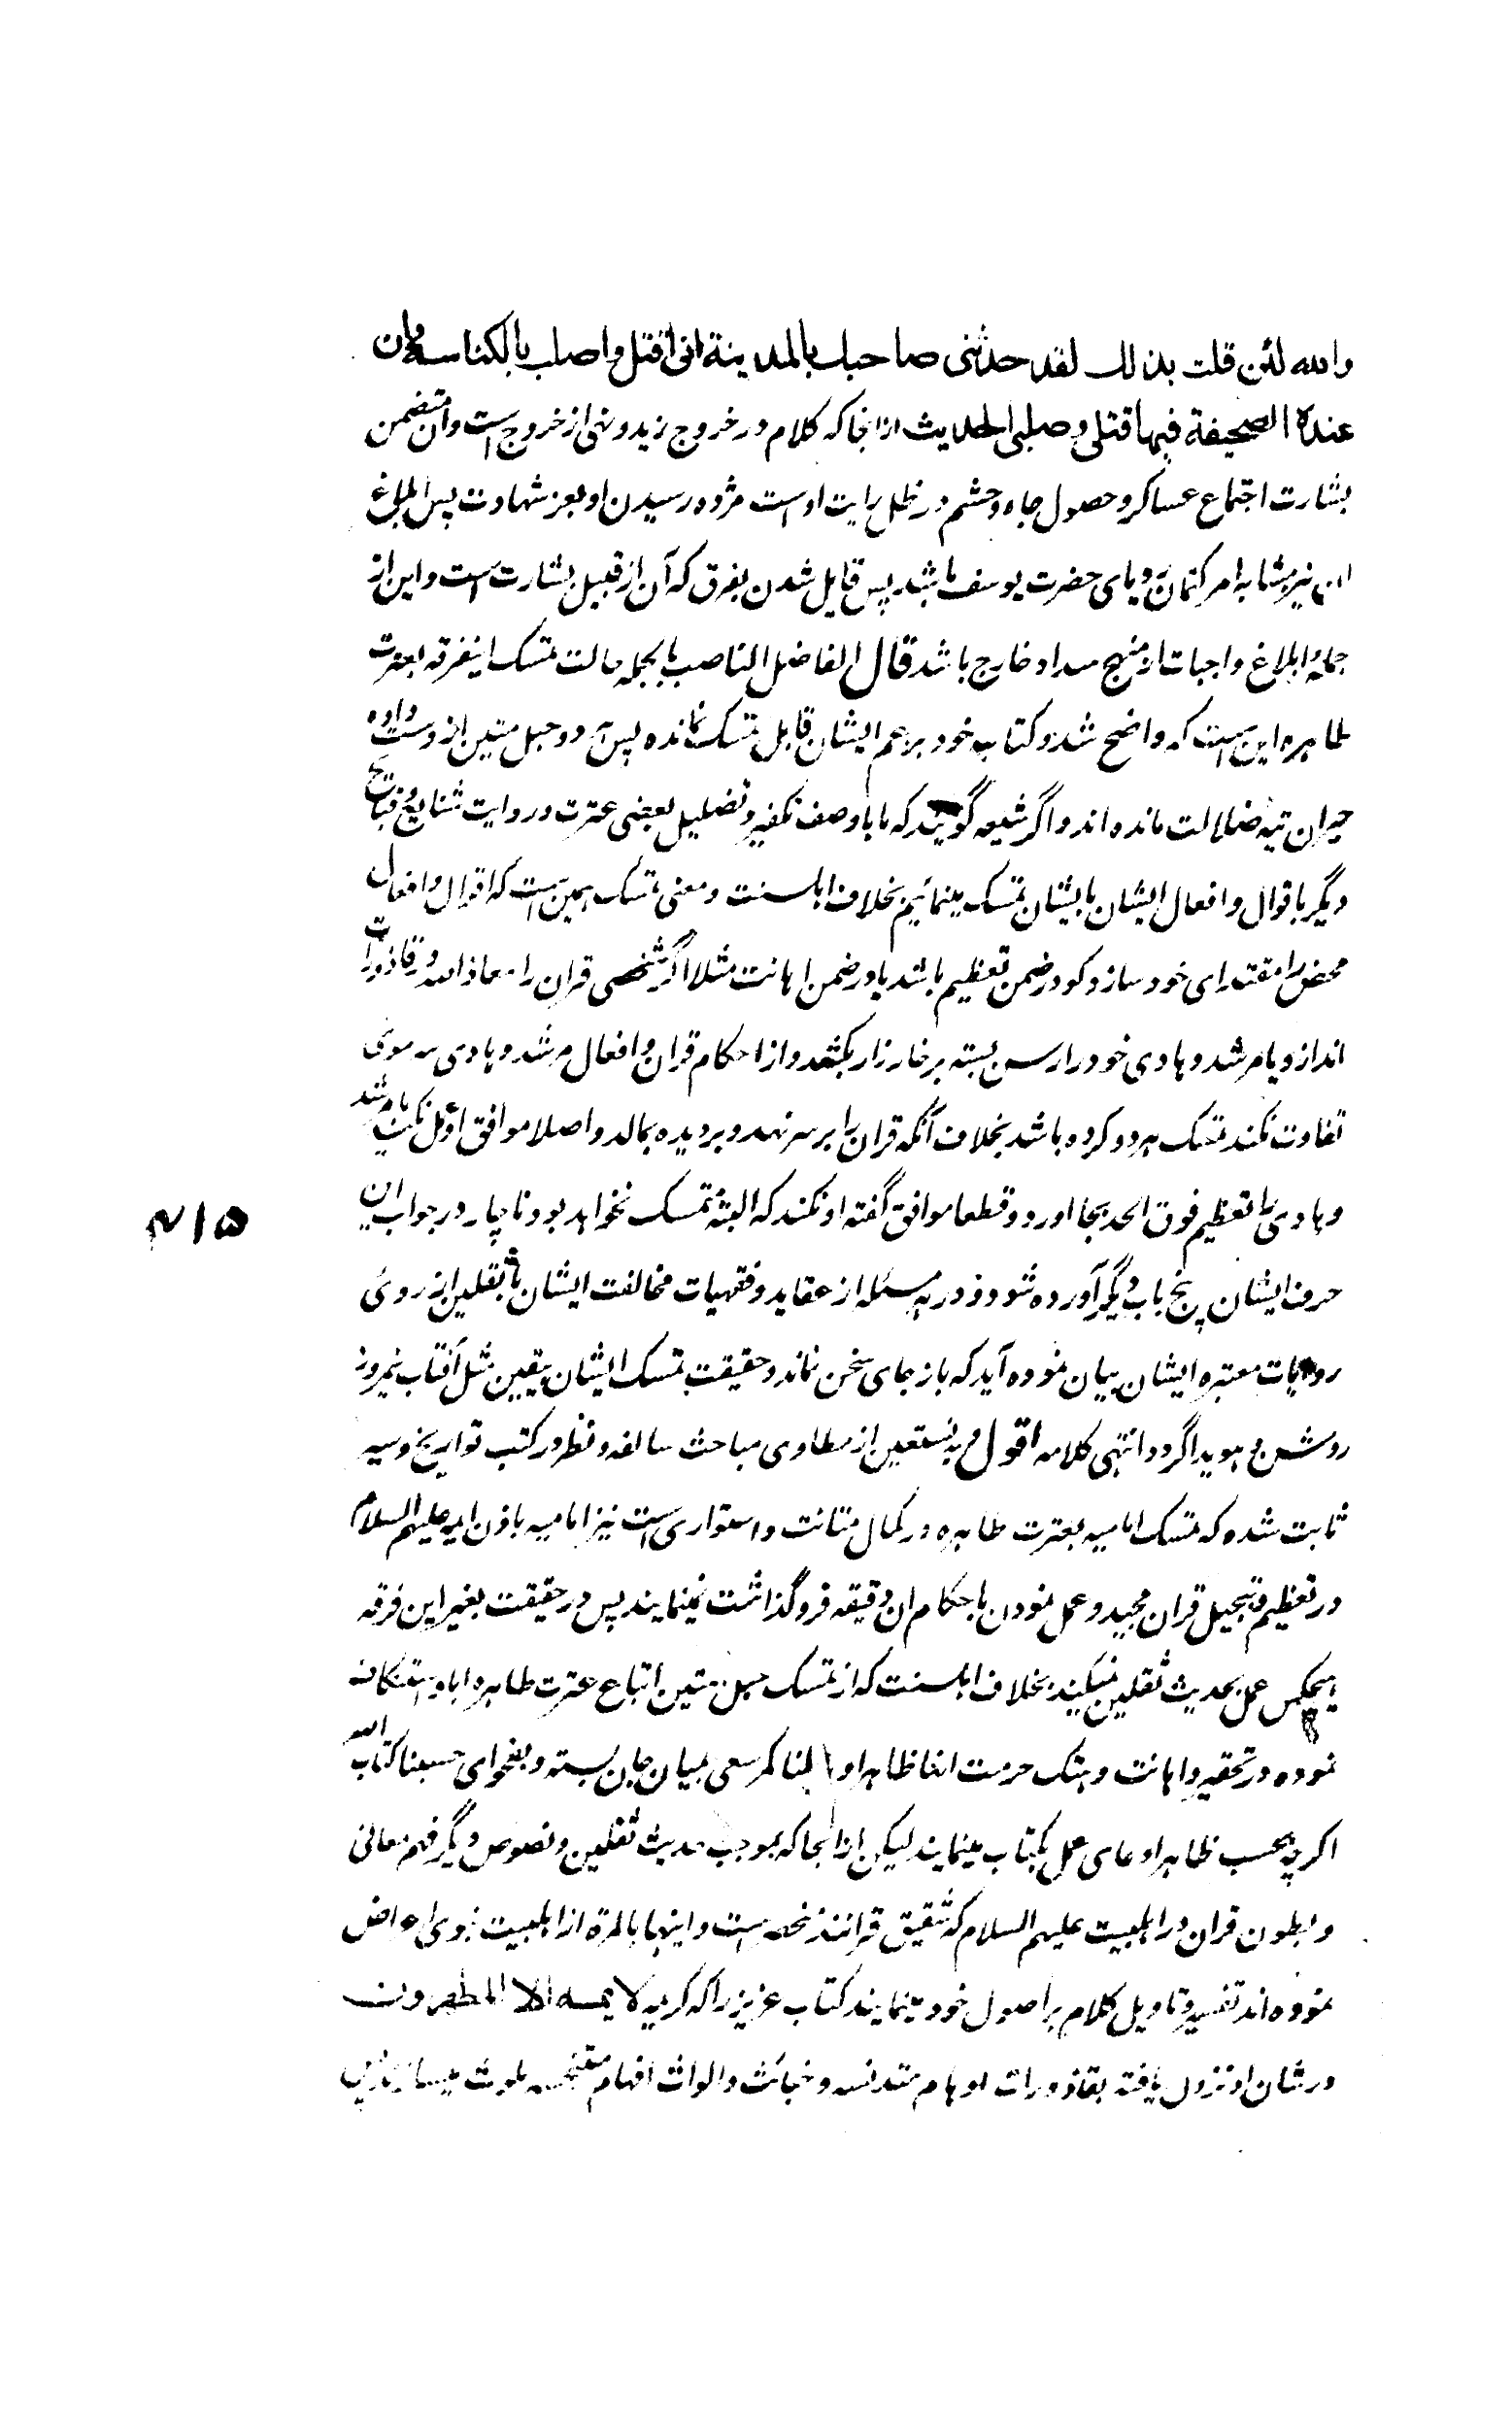 والله لئن قلت بذالک لقد حدثنی صاحبک بالمدینة انی اقتل واصلب بالکناسة وان
عنده الصحیفة فیها قتلی وصلبی الحدیث ازانجا که کلام در خروج زید ونهی از خروج است وان متضمن
بشارت اجتماع عساکر وحصول جاه وحشم در ظل رایت اوست مژده رسیدن او بعز شهادت پس ابلاغ
این نیز مشابه امر کتمان رویای حضرت یوسف باشد پس قایل شدن بفرق که آن از قبیل بشارت است واین از
جمله ابلاغ واجبات از منهج سداد خارج باشد قال الفاضل الناصب بالجمله حالت تمسک اینفرقه بعترت
طاهره این است که واضح شد وکتاب خود بزعم ایشان قابل تمسک نمانده پس هر دو حبل متین از دست داده
حیران تیه ضلالت مانده اند واگر شیعه گویند که ما باوصف تکفیر وتضلیل بعضی عترت وروایت شنایع وقبایح
دیگر باقوال وافعال ایشان بایشان تمسک مینمائیم بخلاف اهلسنت ومعنی تمسک همین است که اقوال وافعال
محض را مقتدای خود سازد کو در ضمن تعظیم باشد یا در ضمن اهانت مثلا اگر شخصی قران را معاذ الله در قاذورات
اندازد یا مرشد وهادی خود را رسن بسته بر خارزار بکشد واز احکام قران وافعال مرشد وهادی سر موی
تفاوت نکند تمسک بهر دو کرده باشد بخلاف آنکه قران را بر سر نهد وبر دیده بمالد واصلا موافق او عمل نکند یا مرشد
وهادی را تعظیم فوق الحد بجا اورد وقطعا موافق گفته او نکند که البته تمسک نخواهد بود ناچار در جواب این
حرف ایشان پنج باب دیگر آورده شود ودر هر مسئله از عقاید وفقهیات مخالفت ایشان با ثقلین از روی
روایات معتبره ایشان بیان نموده آید که باز جای سخن نماند وحقیقت تمسک ایشان بیقین مثل آفتاب نیمروز
روشن و هویدا گردد انتهی کلامه اقول وبه نستعین از مطاوی مباحث سالفه ونظر در کتب تواریخ وسیر
ثابت شده که تمسک امامیه بعترت طاهره در کمال متانت واستواری است نیز امامیه باذن ایمه علیهم السلام
در تعظیم وتبجیل قران مجید وعمل نمودن باحکام ان دقیقه فروگذاشت نمینمایند پس در حقیقت بغیر این فرقه
هیچکس عمل بحدیث ثقلین نمیکند بخلاف اهلسنت که از تمسک حبل متین اتباع عترت طاهره ابا واستنکاف
نموده در تحقیر واهانت وهتک حرمت انها ظاهرا و باطنا کمر سعی بمیان جان بسته وبفحوای حسبنا کتاب الله
اگرچه بحسب ظاهر ادعای عمل بکتاب مینمایند لیکن ازانجا که بموجب حدیث ثقلین ونصوص دیگر فهم معانی
وبطون قران در اهلبیت علیهم السلام که شقیق قرانند منحصر است واینها بالمره از اهلبیت نبوی اعراض
نموده اند تفسیر وتاویل کلام بر اصول خود مینمایند کتاب عزیز را که کریمه لا یمسه الا المطهرون
در شان او نزول یافته بقاذورات اوهام متدنسه وخبائث والواث افهام متنجسه ملوث میسازند پس
۲۱۵